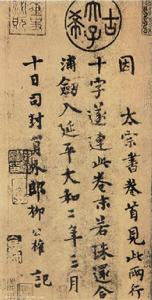 因太宗書卷首見此兩行
十字遂連此卷末若珠還合
浦劍入延平大和二年三月
十日司封員外郎柳公權記